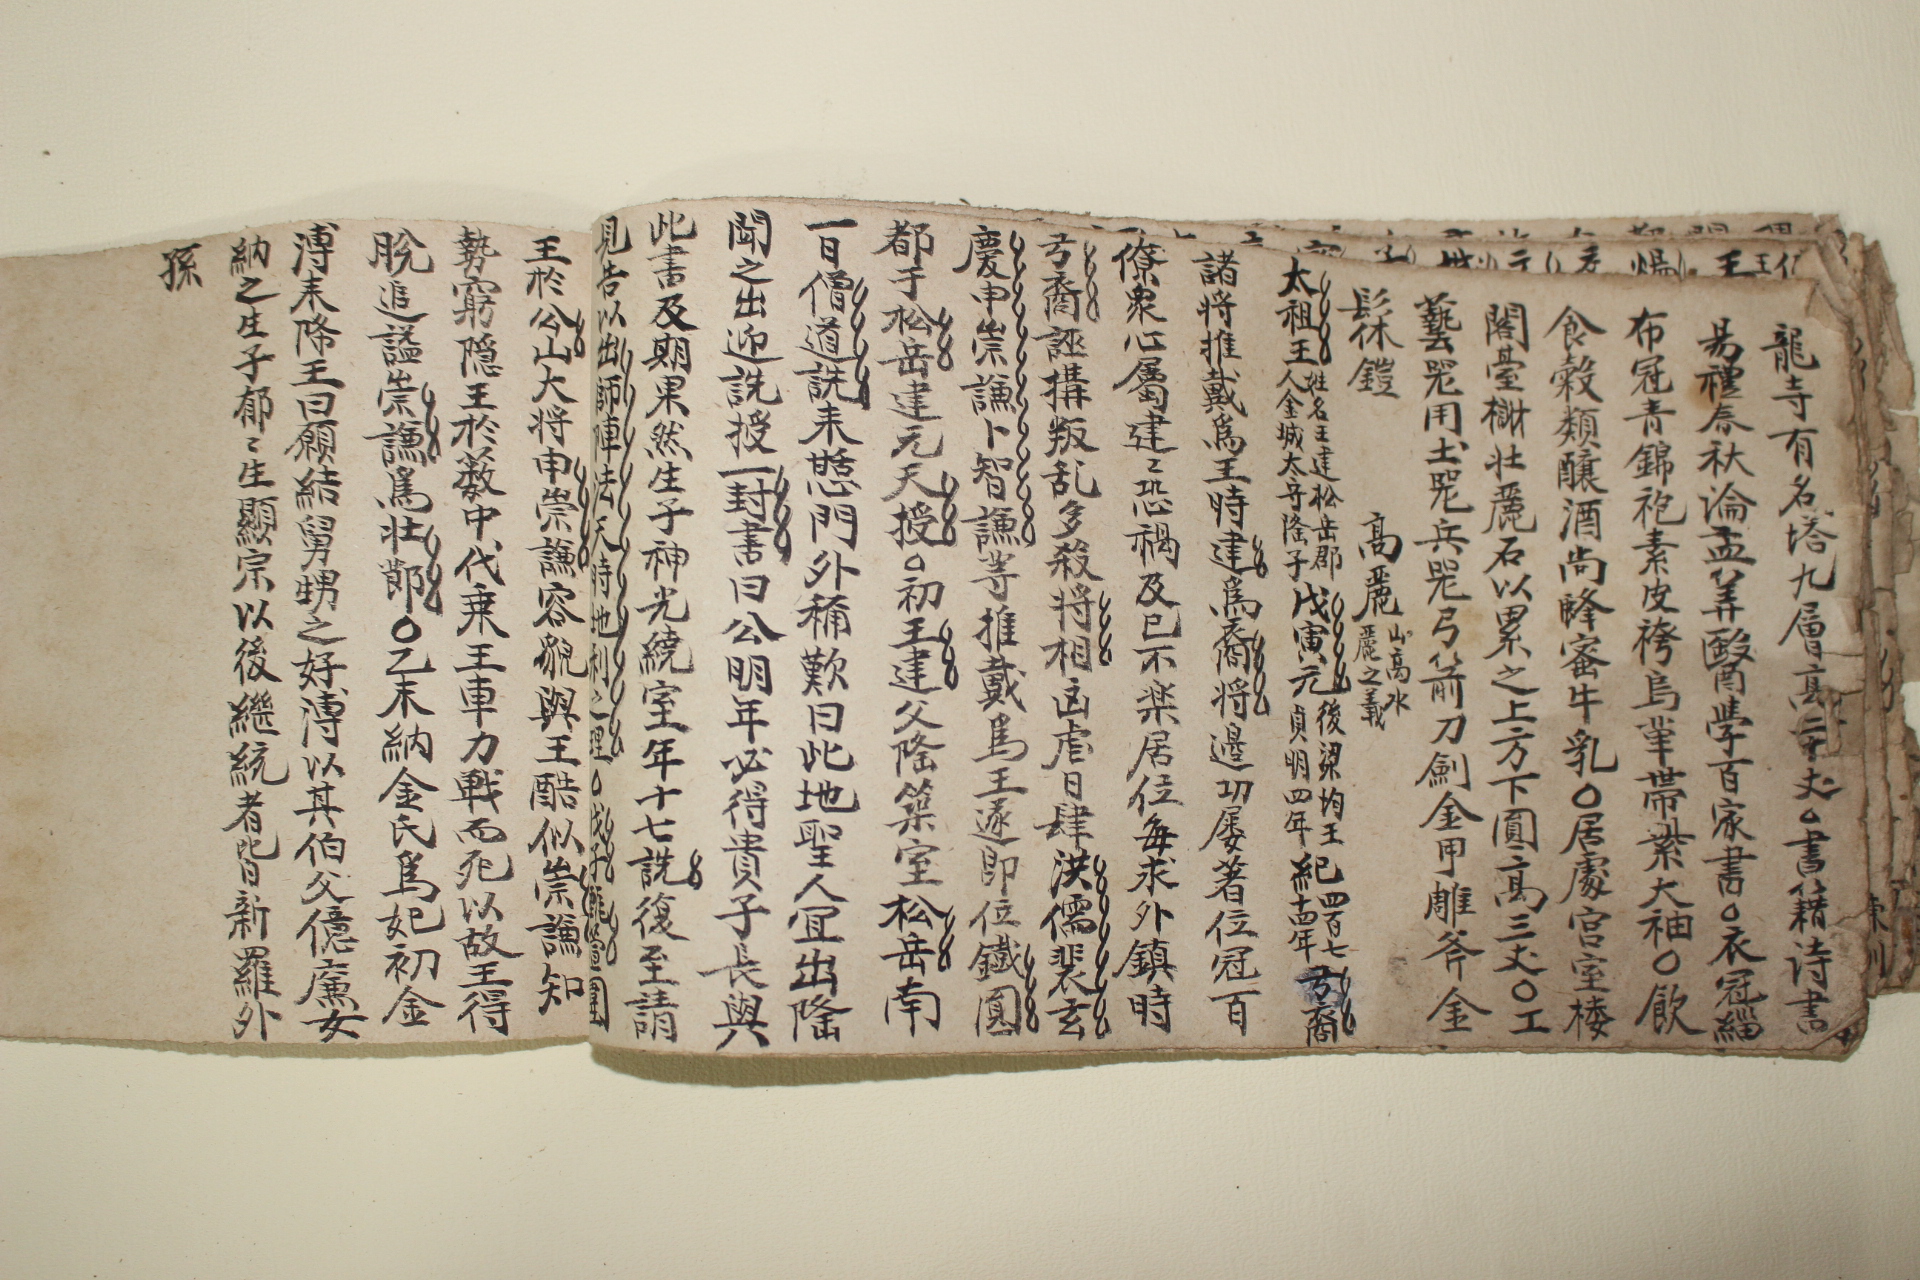 龍寺有名塔九層高二十丈○書籍诗書
易禮春秋論孟筭醫學百家書○衣冠緇
布冠青錦袍素皮袴烏革帶紫大袖○飮
食糓類釀酒尚蜂蜜牛乳○居處宮室楼
閣臺榭壯麗石以累之上方下圓高三丈○工
藝咒用土咒兵咒弓箭刀劍金甲雕斧金
髹鎧
高麗 山高水麗之義
太祖王 姓名王建松岳郡人金城太守隆子 戊寅元 後梁均王貞明四年 紀四百七十四年 弓裔
諸將推戴爲王時建爲裔將邉功屡著位冠百
僚衆心屬建〻恐禍及已不楽居位每求外鎮時
弓裔誣搆叛乱多殺将相凶虐日肆洪儒裴玄
慶申崇謙卜智謙等推戴爲王遂即位鐵圓
都于松岳建元天授○初王建父隆築室松岳南
一日僧道詵来憇門外稱歎曰此地聖人宜出隆
聞之出迎詵授一封書曰公明年必得貴子長與
此書及期果然生子神光繞室年十七詵復至請
見告以出師陣法天時地利之理○戊子甄萱圍
王於公山大将申崇謙容貌與王酷似崇謙知
勢窮隐王於薮中代乗王車力戰而死以故王得
脫追謚崇謙爲壯節○乙未納金氏爲妃初金
溥来降王曰願結舅甥之好溥以其伯父億廉女
納之生子郁〻生顯宗以後繼統者皆新羅外
孫